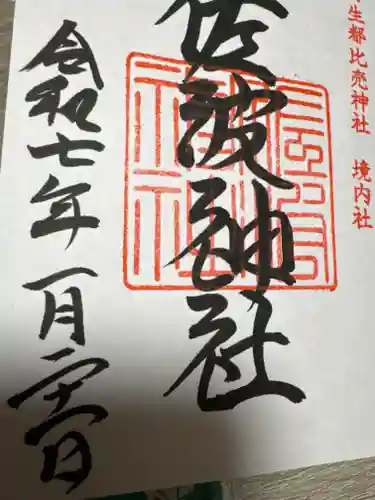 生都比売神社 境内社
佐波神社
令和七年一月二十一日